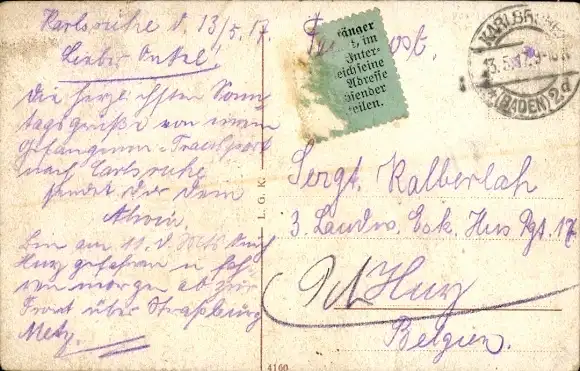 Karlsruhe d. 13/5.17.
Lieber Onkel!
Die herzlichsten Sonn-
tagsgrüße von einem
Gefangenen-Transport
nach Carlsruhe
sendet dir dein
Alwin
Bin am 11. d. Mts nach
Huy gefahren u.
morgen ab zur
Front über Straßburg
Metz.
L. G. K.
4160
Feldpost
änger
im
Inter-
eich seine
Adresse
bsender
teilen.
KARLSRUHE
13.5.17.9-10V
(BADEN) 2d
Sergt. Kalberlah
3. Landw. Esk. Hus Rgt. 17
Huy
Belgien.